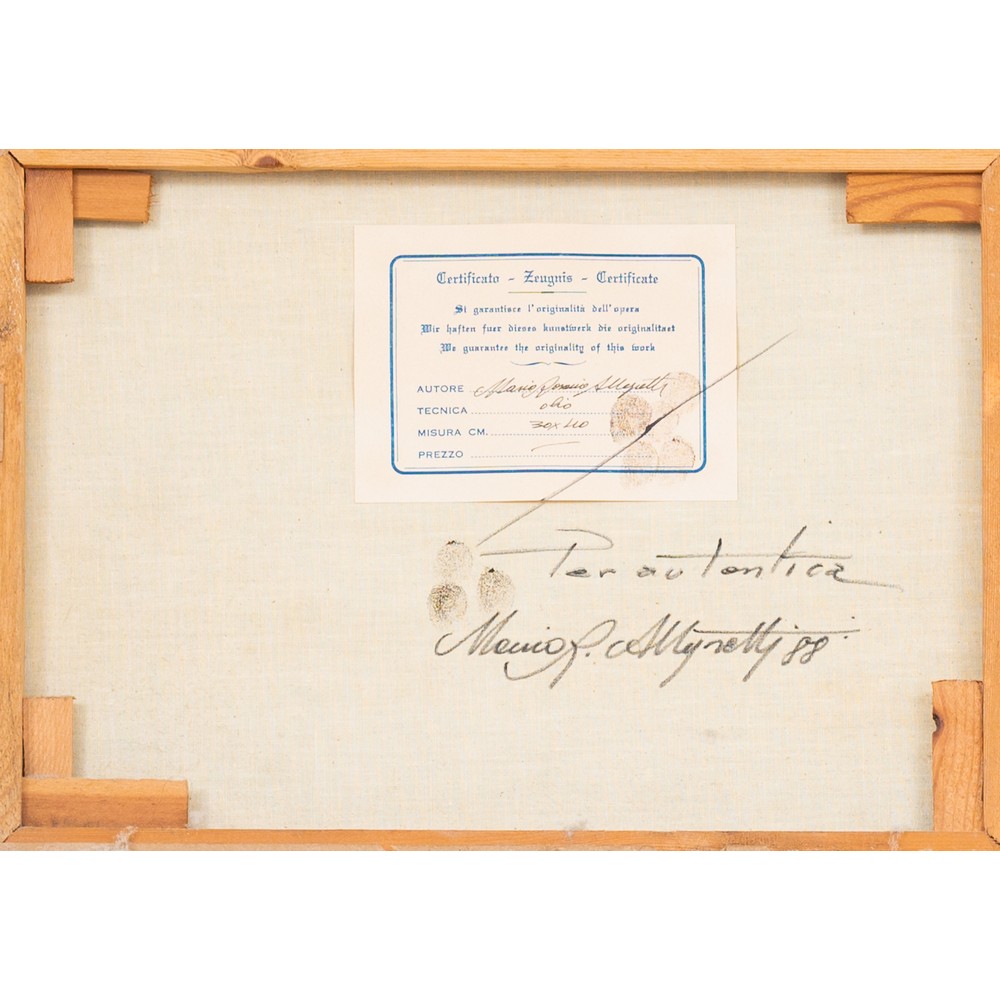 Certificato - Zeugnis - Certificate
Si garantisce l'originalità dell'opera
Wir haften fuer dieses kunstwerk die originalitaet
We guarantee the originality of this work
AUTORE Mario
TECNICA olio
MISURA CM. 30x40
PREZZO
Per autentica
Mario 88